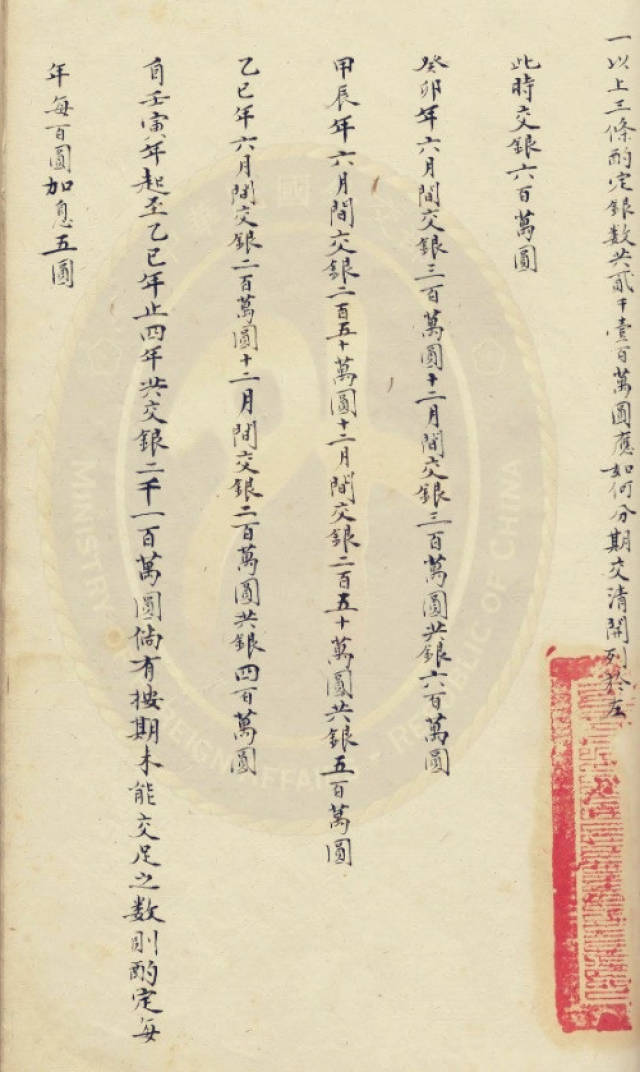 一以上三條酌定銀数共貳千壹百萬圓應如何分期交清開列於左
此時交銀六百萬圓
癸卯年六月間交銀三百萬圓十二月間交銀三百萬圓共銀六百萬圓
甲辰年六月間交銀二百五十萬圓十二月間交銀二百五十萬圓共銀五百萬圓
乙巳年六月間交銀二百萬圓十二月間交銀二百萬圓共銀四百萬圓
自壬寅年起至乙巳年止四年共交銀二千一百萬圓倘有按期未能交足之数則酌定每
年每百圓加息五圓
MINISTRY OF FOREIGN AFFAIRS - REPUBLIC OF CHINA